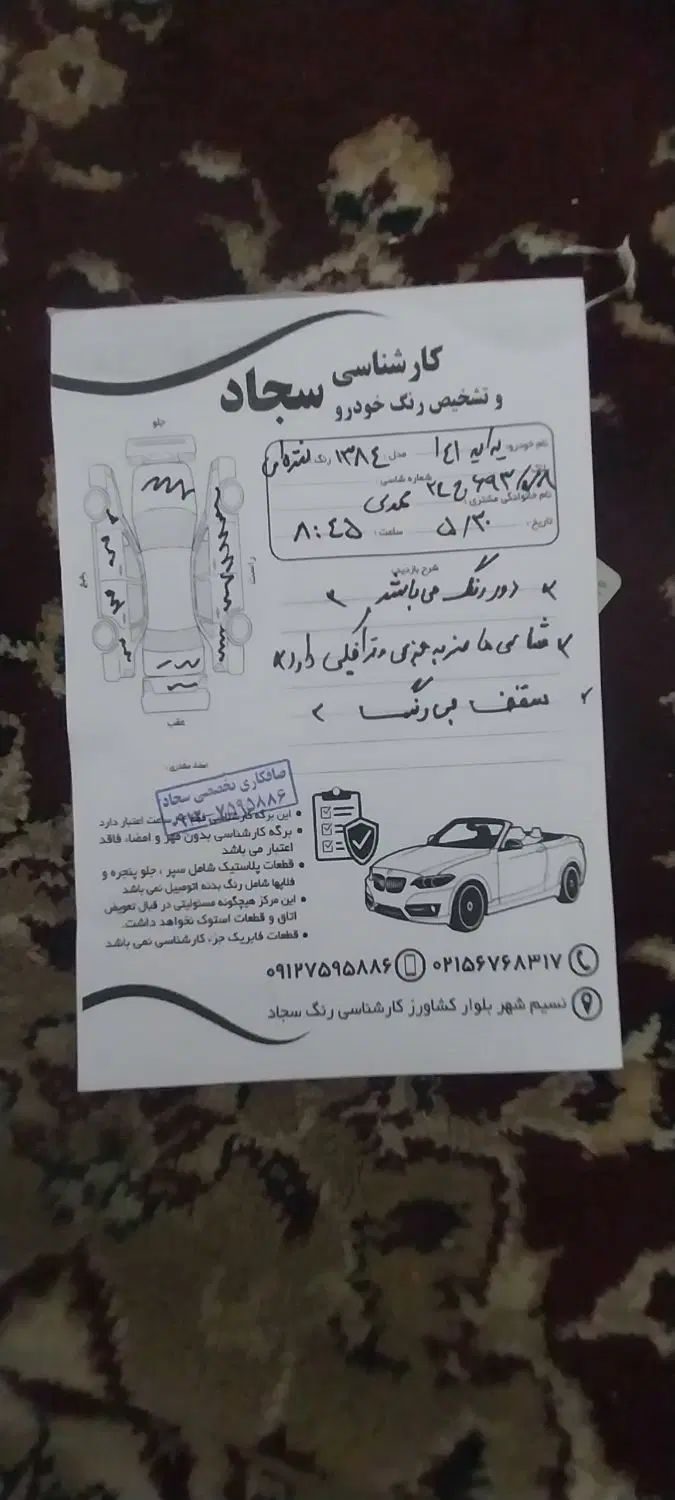 کارشناسی
و تشخیص رنگ خودرو
سجاد
نام خودرو: پراید ۱۴۱ مدل: ۱۳۸۴ رنگ نقره‌ای
شماره شاسی:
نام خانوادگی مشتری: محمدی
تاریخ: ۵/۳۰ ساعت: ۸:۴۵
جلو
راست
چپ
عقب
شرح بازدید:
دور رنگ می باشد
شاسی ها ضربه جزیی و ترافیکی دارد
سقف بی رنگ
امضاء مشتری:
صافکاری تخصصی سجاد
۰۹۱۲-۷۵۹۵۸۸۶
این برگه کارشناسی ساعت اعتبار دارد
برگه کارشناسی بدون مهر و امضاء فاقد
اعتبار می باشد
قطعات پلاستیک شامل سپر ، جلو پنجره و
فلاپها شامل رنگ بدنه اتومبیل نمی باشد
این مرکز هیچگونه مسئولیتی در قبال تعویض
اتاق و قطعات استوک نخواهد داشت.
قطعات فابریک جزء کارشناسی نمی باشد
۰۲۱۵۶۷۶۸۳۱۷
۰۹۱۲۷۵۹۵۸۸۶
نسیم شهر بلوار کشاورز کارشناسی رنگ سجاد